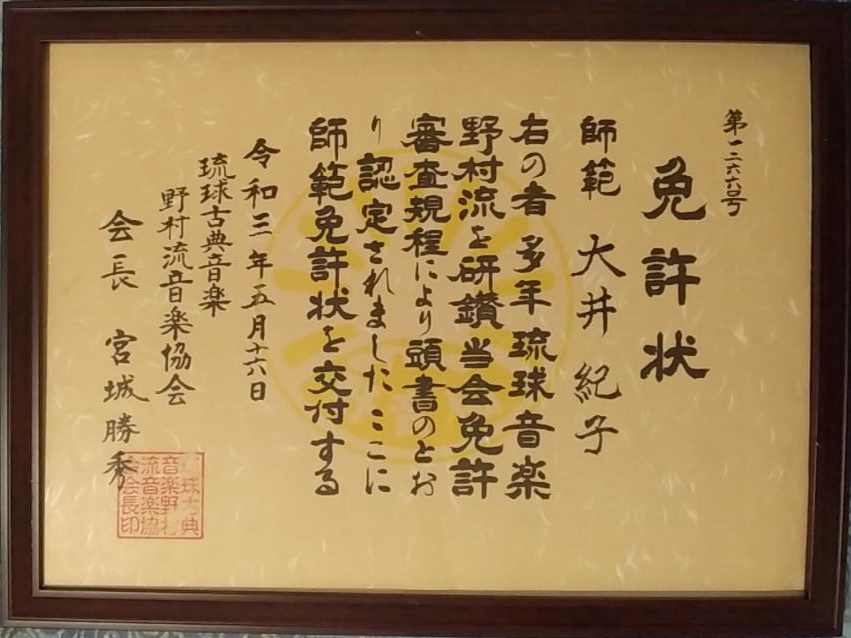 第一二六六号
免許状
師範 大井紀子
右の者多年琉球音楽
野村流を研鑽当会免許
審査規程により頭書のとお
り認定されましたここに
師範免許状を交付する
令和三年五月十六日
琉球古典音楽
野村流音楽協会
会長 宮城勝秀
琉球古典
音楽野村
流音楽協
会会長印